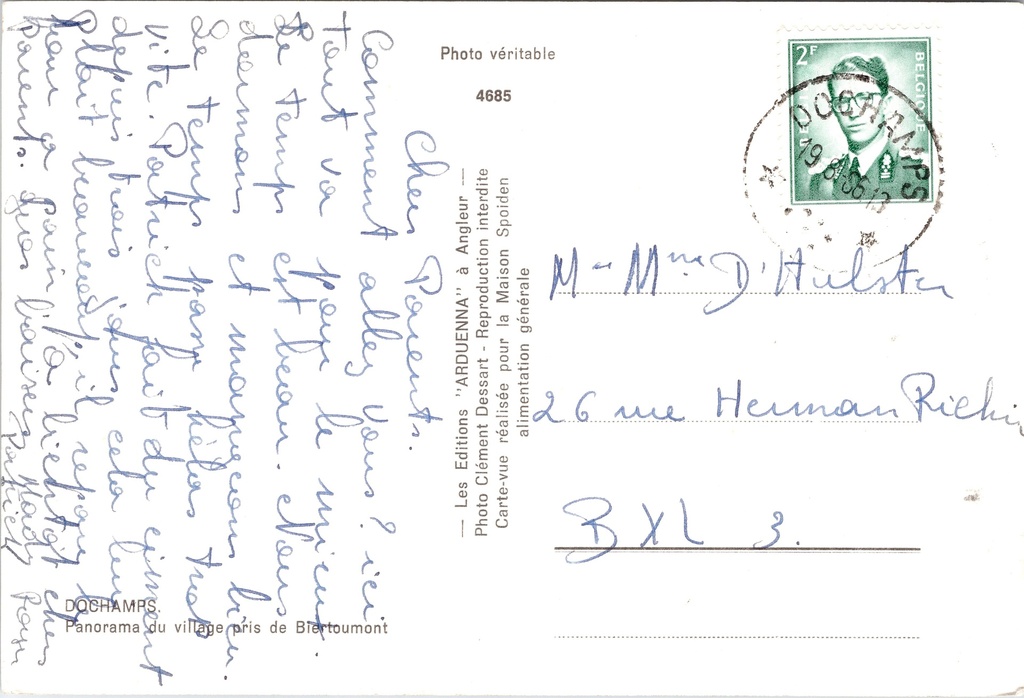 Photo véritable
4685
2F
BELGIQUE
DOCHAMPS
19
Chers Parents.
Comment allez vous? ici
tout va pour le mieux.
Le temps est beau. Nous
dormons et mangeons bien.
Le temps passe hélas trop
vite. Patrick fait du ciment
depuis trois jours cela lui
plait beaucoup il répare le
four a pain. A bientot chers
parents. Gros baisers
Patrick
— Les Editions "ARDUENNA" à Angleur —
Photo Clément Dessart - Reproduction interdite
Carte-vue réalisée pour la Maison Spoiden
alimentation générale
M Mme D'Hulster
26 rue Herman Richir
BXL 3.
DOCHAMPS.
Panorama du village pris de Biertoumont